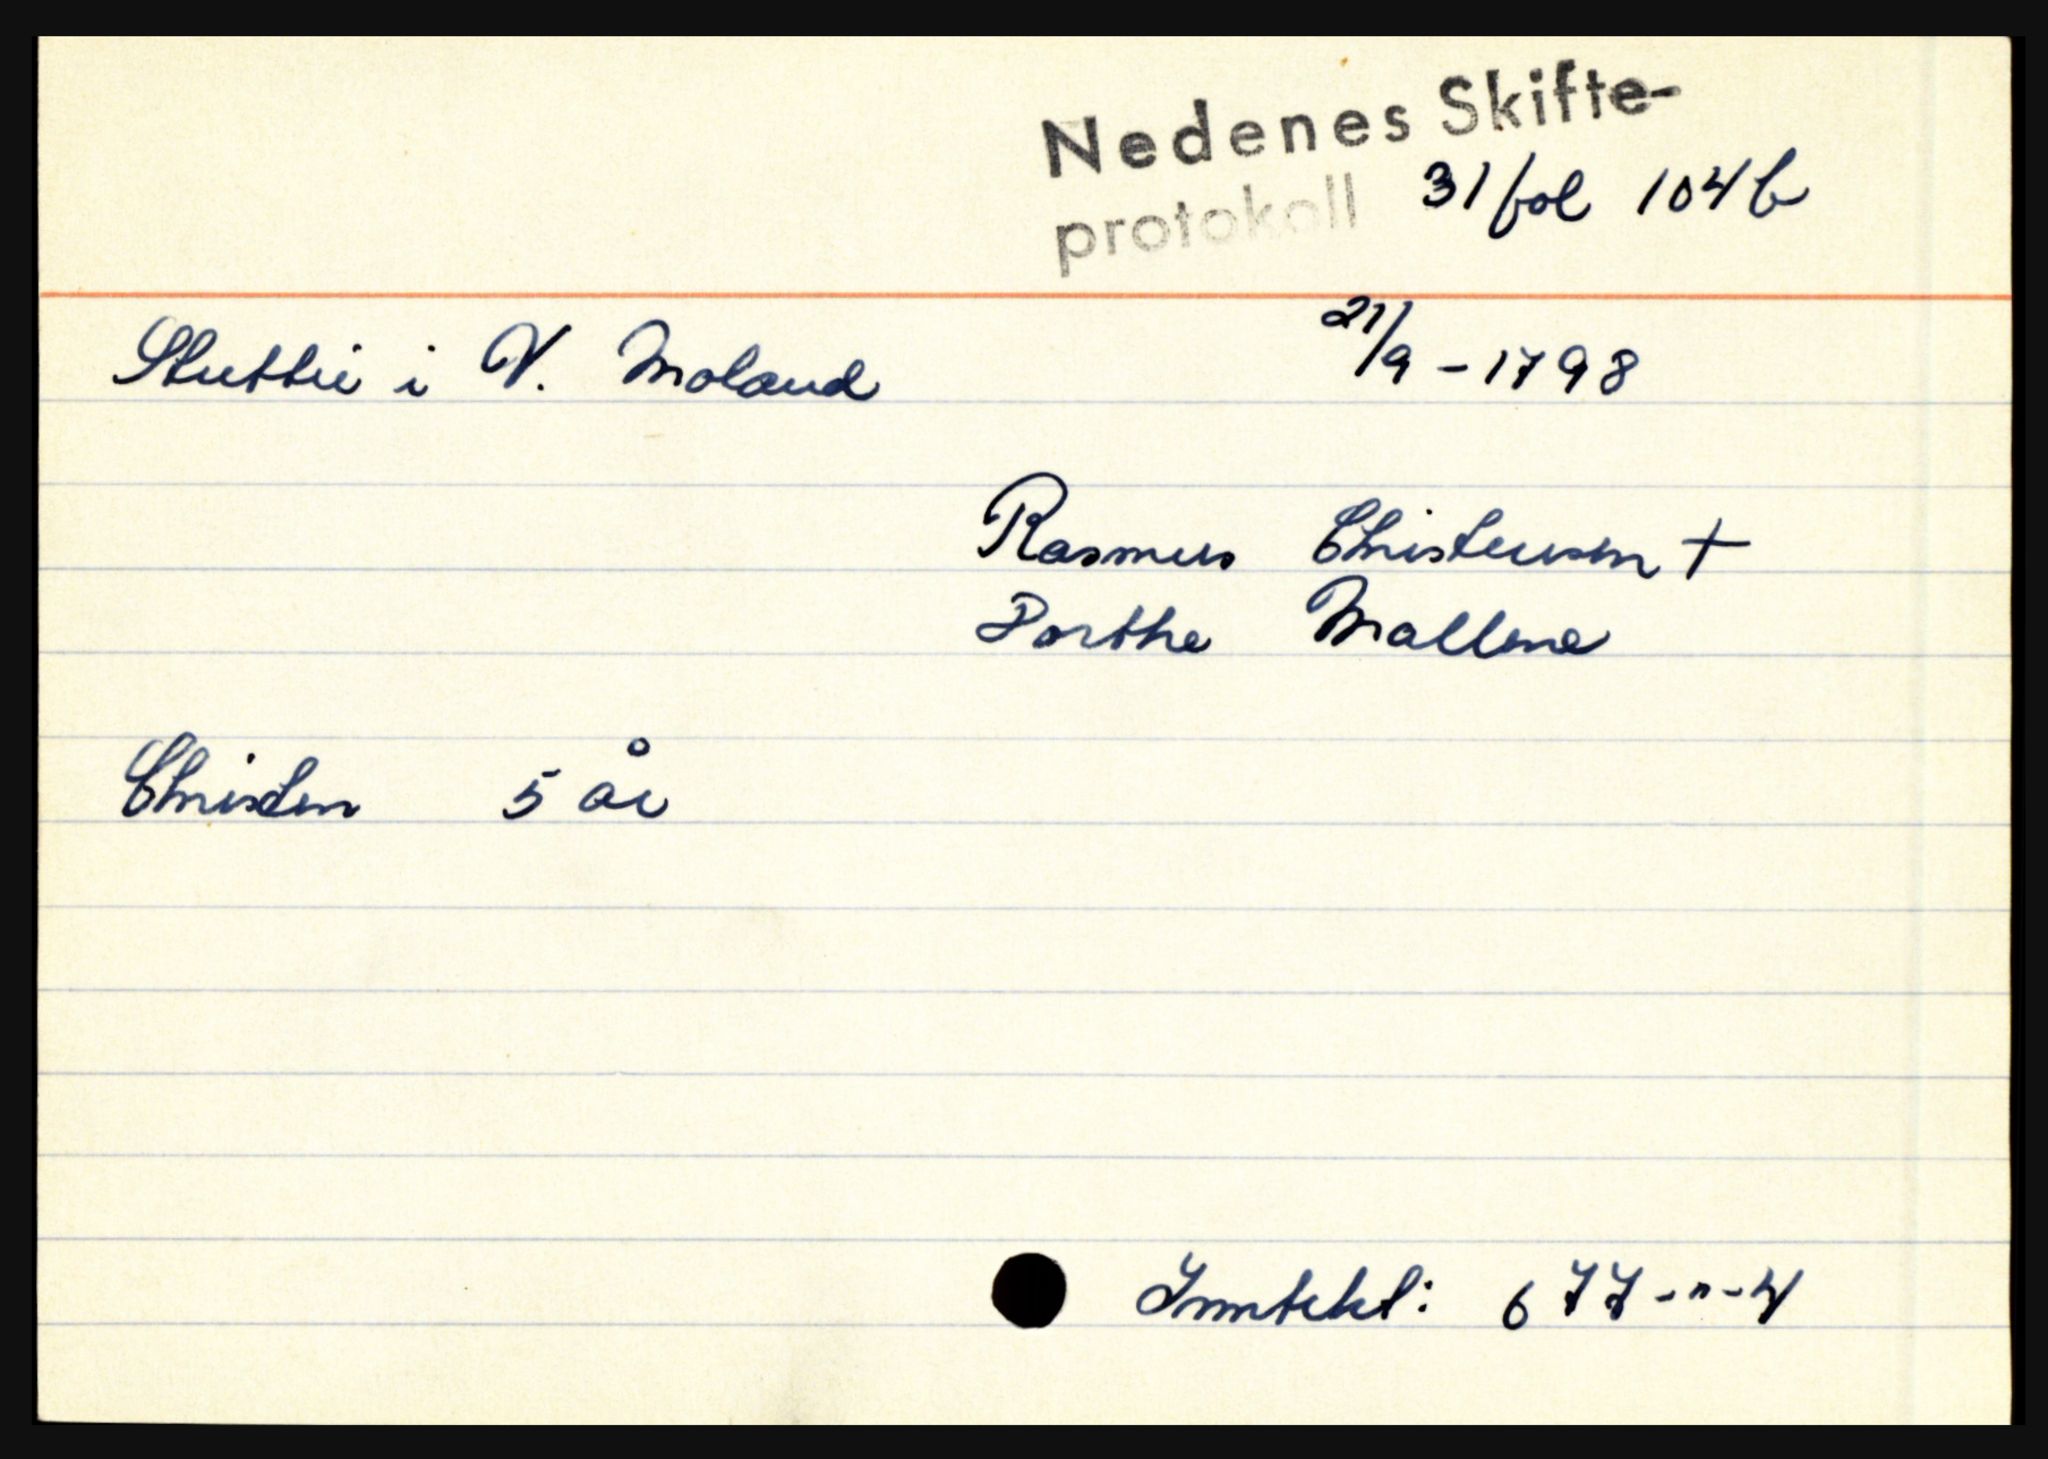 Nedenes Skifte-
protokoll 31 fol 104 b
Stuttlie i V. Moland 21/9 - 1798
Rasmus Christensen +
Dorthe Mallene
Christen 5 år
Inntekt: 677-"-4